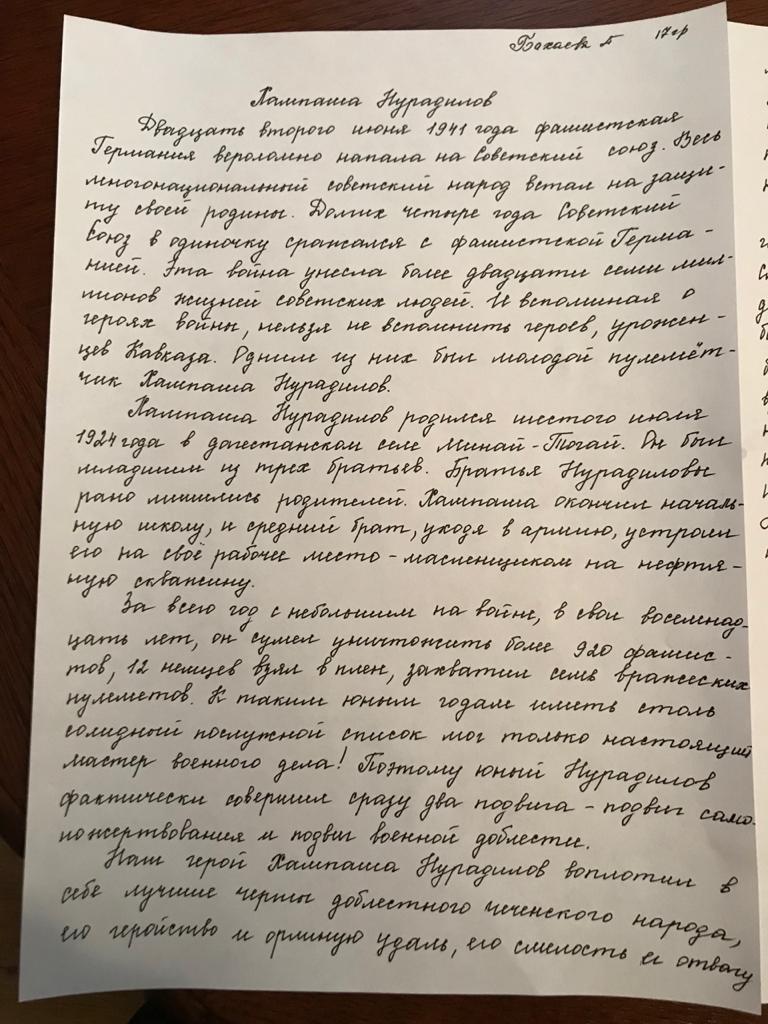 Бахаева Т 17гр
Хампаша Нурадилов
Двадцать второго июня 1941 года фашистская
Германия вероломно напала на Советский союз. Весь
многонациональный советский народ встал на защи-
ту своей родины. Долгих четыре года Советский
Союз в одиночку сражался с фашистской Герма-
нией. Эта война унесла более двадцати семи мил-
лионов жизней советских людей. И вспоминая о
героях войны, нельзя не вспомнить героев, урожен-
цев Кавказа. Одним из них был молодой пулемёт-
чик Хампаша Нурадилов.
Хампаша Нурадилов родился шестого июля
1924 года в дагестанском селе Минай-Тогай. Он был
младшим из трех братьев. Братья Нурадиловы
рано лишились родителей. Хампаша окончил началь-
ную школу, и средний брат, уходя в армию, устроил
его на своё рабочее место - масленщиком на нефтя-
ную скважину.
За всего год с небольшим на войне, в свои восемнад-
цать лет, он сумел уничтожить более 920 фашис-
тов, 12 немцев взял в плен, захватил семь вражеских
пулеметов. К таким юным годам иметь столь
солидный послужной список мог только настоящий
мастер военного дела! Поэтому юный Нурадилов
фактически совершил сразу два подвига - подвиг само-
пожертвования и подвиг военной доблести.
Наш герой Хампаша Нурадилов воплотил в
себе лучшие черты доблестного чеченского народа,
его геройство и орлиную удаль, его смелость и отвагу